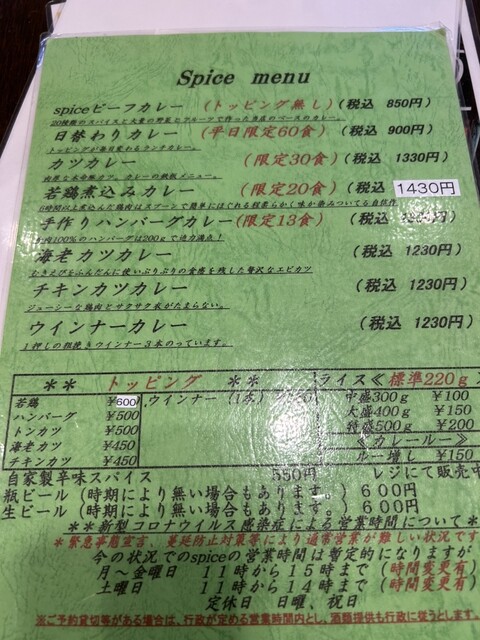 Spice menu
spiceビーフカレー (トッピング無し)(税込 850円)
20種類のスパイスと大量の野菜とフルーツで作った当店のベースのカレー。
日替わりカレー (平日限定60食) (税込 900円)
トッピングが毎日変わるランチカレー。
カツカレー (限定30食) (税込 1330円)
若鶏煮込みカレー (限定20食) (税込 1430円
手作りハンバーグカレー(限定13食) (税込
肉100%のハンバーグは200gで迫力満点!
海老カツカレー (税込 1230円)
むきえびをふんだんに使いぷりぷりの食感を残した贅沢なエビカツ
チキンカツカレー (税込 1230円)
ジューシーな鶏肉とサクサク衣がたまらない。
ウインナーカレー (税込 1230円)
1押しの粗挽きウインナー3本のっています。
** トッピング **
若鶏 ¥600
ハンバーグ ¥500
トンカツ ¥500
海老カツ ¥450
チキンカツ ¥450
ウインナー (1本)
ライス≪標準220g
中盛300g ¥100
大盛400g ¥150
特盛500g ¥200
≪カレールー≫
ルー増し ¥150
自家製辛味スパイス 550円 レジにて販売中
瓶ビール (時期により無い場合もあります。) 600円
生ビール (時期により無い場合もあります。) 600円
**新型コロナウイルス感染症による営業時間について*
*緊急事態宣言、蔓延防止対策等により通常営業が難しい状況です
今の状況でのspiceの営業時間は暫定的になりますが
月~金曜日 11時から15時まで (時間変更有)
土曜日 11時から14時まで (時間変更有)
定休日 日曜、祝日
※ご予約貸切等がある場合は、行政が定める営業時間内とし、酒類提供も行政に従うとします。